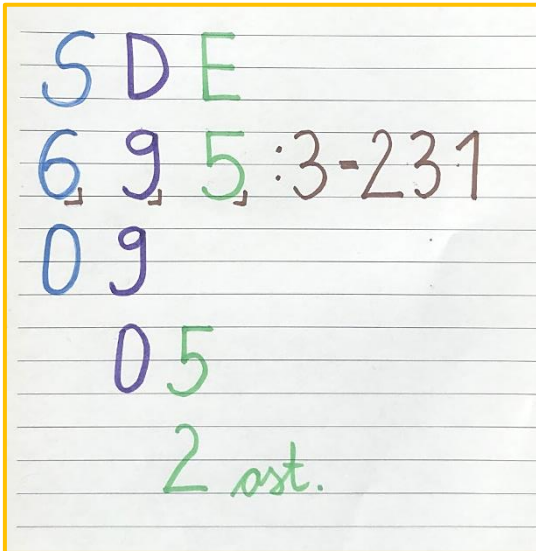 S D E
6 9 5 :3=231
0 9
0 5
2 ost.